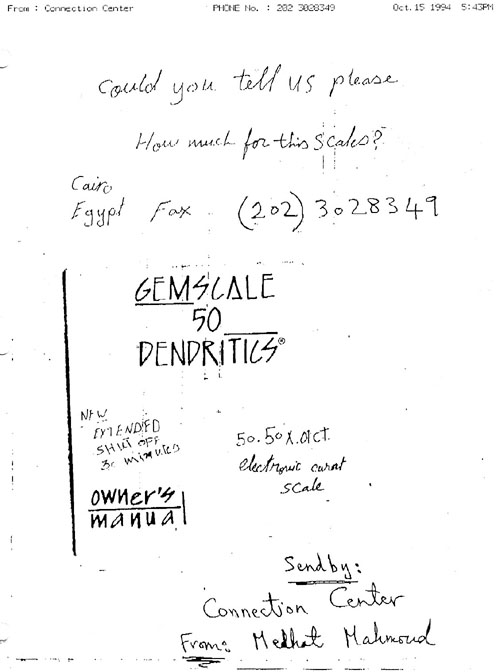 From : Connection Center PHONE No. : 202 3028349 Oct.15 1994 5:43PM
Could you tell us please
How much for this Scales?
Cairo
Egypt Fax (202) 3028349
GEMSCALE
50
DENDRITICS®
NEW
EXTENDED
SHUT OFF
30 minutes
50.50 X .01ct.
electronic carat
scale
owner's
manual
Send by:
Connection Center
From: Medhat Mahmoud